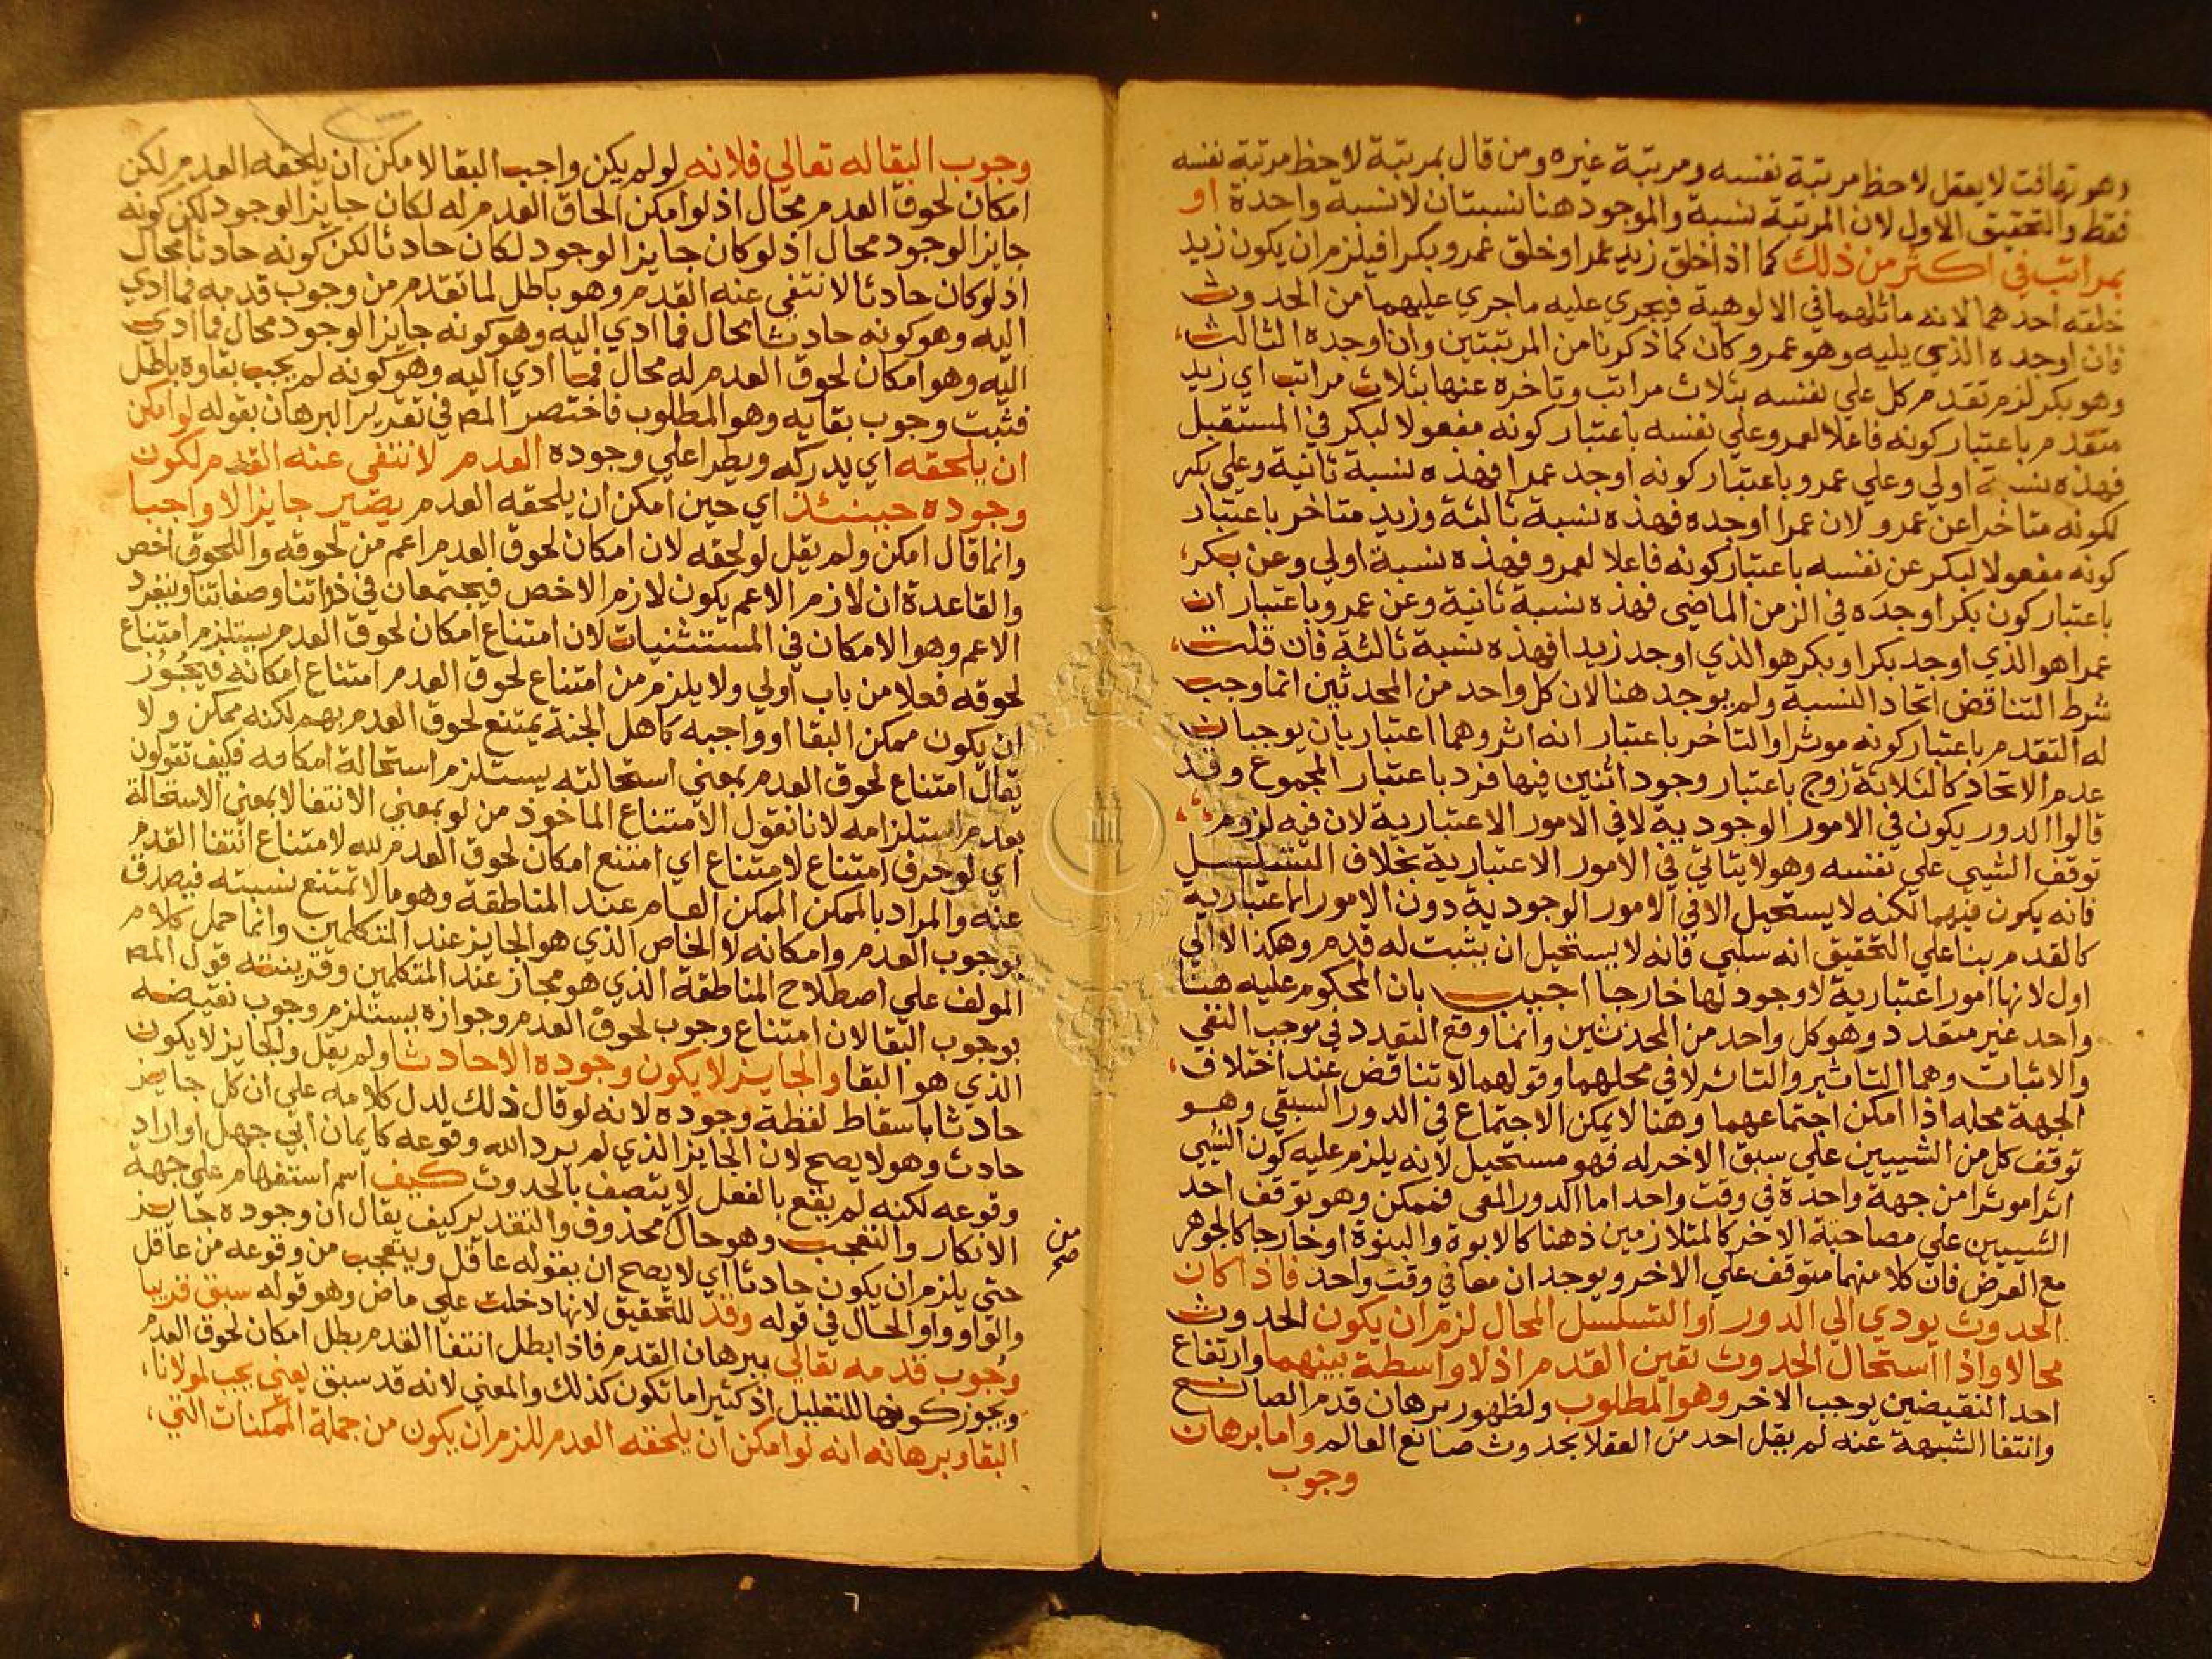 وهو تهافت لا يعقل لاحظ مرتبة نفسه ومرتبة غيره ومن قال بمرتبة لاحظ مرتبة نفسه
فقط والتحقيق الاول لان المرتبة نسبة والموجود هنا نسبتان لا نسبة واحدة او
بمراتب في اكثر من ذلك كما اذا خلق زيد عمرا وخلق عمرو بكرا فيلزم ان يكون زيد
خلقه احدهما لانه ماثلهما في الالوهية فيجري عليه ما جري عليهما من الحدوث
فان اوجده الذي يليه وهو عمرو كان كما ذكرنا من المرتبتين وان اوجده الثالث
وهو بكر لزم تقدم كل علي نفسه بثلاث مراتب وتاخره عنها بثلاث مراتب اي زيد
متقدم باعتبار كونه فاعلا لعمرو علي نفسه باعتبار كونه مفعولا لبكر في المستقبل
فهذه نسبة اولي وعلي عمرو باعتبار كونه اوجد عمرا فهذه نسبة ثانية وعلي بكر
لكونه متاخرا عن عمرو لان عمرا اوجده فهذه نسبة ثالثة وزيد متاخر باعتبار
كونه مفعولا لبكر عن نفسه باعتبار كونه فاعلا لعمرو فهذه نسبة اولي وعن بكر
باعتبار كون بكر اوجده في الزمن الماضي فهذه نسبة ثانية وعن عمرو باعتبار ان
عمرا هو الذي اوجد بكرا وبكر هو الذي اوجد زيدا فهذه نسبة ثالثة فان قلت
شرط التناقض اتحاد النسبة ولم يوجد هنا لان كل واحد من المحدثين انما وجب
له التقدم باعتبار كونه موثرا والتاخر باعتبار انه اثر وهما اعتباريان يوجبان
عدم الاتحاد كالثلاثة زوج باعتبار وجود اثنين فيها فرد باعتبار المجموع وقد
قالوا الدور يكون في الامور الوجودية لا في الامور الاعتبارية لان فيه لزوم
توقف الشيي علي نفسه وهو لا يتاتي في الامور الاعتبارية بخلاف التسلسل
فانه يكون فيهما لكنه لا يستحيل الا في الامور الوجودية دون الامور الاعتبارية
كالقدم بنا علي التحقيق انه سلبي فانه لا يستحيل ان يثبت له قدم وهكذا الا الي
اول لانها امور اعتبارية لا وجود لها خارجا اجيب بان المحكوم عليه هنا
واحد غير متعدد وهو كل واحد من المحدثين وانما وقع التعدد في موجب النفي
والاثبات وهما التاثير والتاثر لا في محلهما وقولهما لا تناقض عند اختلاف
الجهة محله اذا امكن اجتماعهما وهنا لا يمكن الاجتماع في الدور السبقي وهو
توقف كل من الشييين علي سبق الاخر له فهو مستحيل لانه يلزم عليه كون الشيي
اثرا موثرا من جهة واحدة في وقت واحد اما الدور المعي فممكن وهو توقف احد
الشييين علي مصاحبة الاخر كالمتلازمين ذهنا كالابوة والبنوة او خارجا كالجوهر
مع العرض فان كلا منهما متوقف علي الاخر ويوجدان معا في وقت واحد فاذا كان
الحدوث يودي الي الدور او التسلسل المحال لزم ان يكون الحدوث
محالا واذا استحال الحدوث تعين القدم اذ لا واسطة بينهما وارتفاع
احد النقيضين يوجب الاخر وهو المطلوب ولظهور برهان قدم الصانع
وانتفا الشبهة عنه لم يقل احد من العقلا بحدوث صانع العالم واما برهان
وجوب
وجوب البقا له تعالي فلانه لو لم يكن واجب البقا لامكن ان يلحقه العدم لكن
امكان لحوق العدم محال اذ لو امكن الحاق العدم له لكان جايز الوجود لكن كونه
جايز الوجود محال اذ لو كان جايز الوجود لكان حادثا لكن كونه حادثا محال
اذ لو كان حادثا لانتفي عنه القدم وهو باطل لما تقدم من وجوب قدمه فما ادي
اليه وهو كونه حادثا محال فما ادي اليه وهو كونه جايز الوجود محال فما ادي
اليه وهو امكان لحوق العدم له محال فما ادي اليه وهو كونه لم يجب بقاوه باطل
فثبت وجوب بقايه وهو المطلوب فاختصر المص في تقدير البرهان بقوله لو امكن
ان يلحقه اي يدركه ويطرا علي وجوده العدم لانتفي عنه القدم لكون
وجوده حينئذ اي حين امكن ان يلحقه العدم يصير جايزا لا واجبا
وانما قال امكن ولم يقل لو لحقه لان امكان لحوق العدم اعم من لحوقه واللحوق اخص
والقاعدة ان لازم الاعم يكون لازم الاخص فيجتمعان في ذواتنا وصفاتنا وينفرد
الاعم وهو الامكان في المستثنيات لان امتناع امكان لحوق العدم يستلزم امتناع
لحوقه فعلا من باب اولي ولا يلزم من امتناع لحوق العدم امتناع امكانه فيجوز
ان يكون ممكن البقا او واجبه كاهل الجنة يمتنع لحوق العدم بهم لكنه ممكن ولا
يقال امتناع لحوق العدم بمعني استحالته يستلزم استحالة امكانه فكيف تقولون
بعدم استلزامه لانا نقول الامتناع الماخوذ من لو بمعني الانتفا لا بمعني الاستحالة
اي لو حرف امتناع لامتناع اي امتنع امكان لحوق العدم لله لامتناع انتفا القدم
عنه والمراد بالممكن الممكن العام عند المناطقة وهو ما لا تمتنع نسبته فيصدق
بوجوب العدم وامكانه لا الخاص الذي هو الجايز عند المتكلمين وانما حمل كلام
المولف علي اصطلاح المناطقة الذي هو مجاز عند المتكلمين وقرينته قول المص
بوجوب البقا لان امتناع وجوب لحوق العدم وجوازه يستلزم وجوب نقيضه
الذي هو البقا والجايز لا يكون وجوده الا حادثا ولم يقل والجايز لا يكون
حادثا باسقاط لفظة وجوده لانه لو قال ذلك لدل كلامه علي ان كل جايز
حادث وهو لا يصح لان الجايز الذي لم يرد الله وقوعه كايمان ابي جهل او اراد
وقوعه لكنه لم يقع بالفعل لا يتصف بالحدوث كيف اسم استفهام علي جهة
الانكار والتعجب وهو حال محذوف والتقدير كيف يقال ان وجوده جايز
حتي يلزم ان يكون حادثا اي لا يصح ان يقوله عاقل ويتعجب من وقوعه من عاقل
من
صح
والواو واو الحال في قوله وقد للتحقيق لانها دخلت علي ماض وهو قوله سبق قريبا
وجوب قدمه تعالي ببرهان القدم فاذا بطل انتفا القدم بطل امكان لحوق العدم
ويجوز كونها للتعليل اذ كثيرا ما تكون كذلك والمعني لانه قد سبق يعني يجب لمولانا
البقا وبرهانه انه لو امكن ان يلحقه العدم للزم ان يكون من جملة الممكنات التي